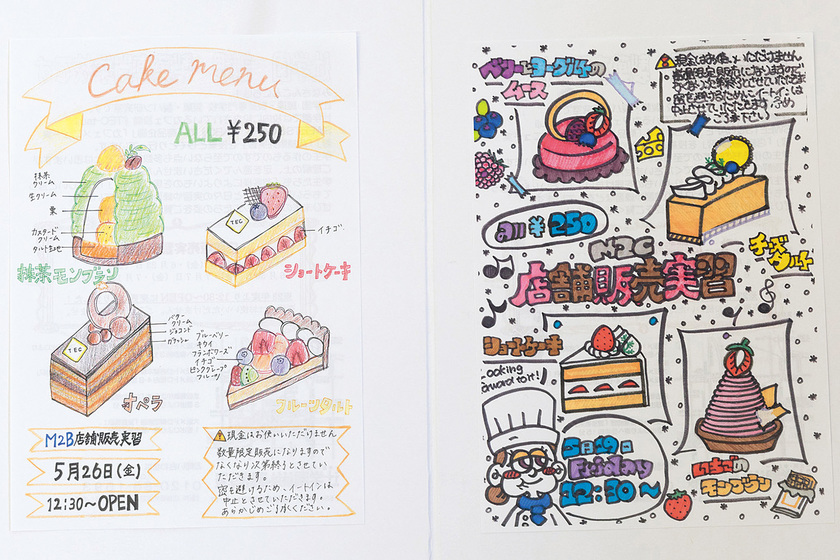 Cake menu
ALL ¥250
抹茶
クリーム
生クリーム
栗
カスタード
クリーム
タルト生地
抹茶モンブラン
TEC
イチゴ
ショートケーキ
TEC
バター
クリーム
ジョコンド
ガナッシュ
オペラ
ブルーベリー
キウイ
フランボワーズ
イチゴ
ピンクグレープ
フルーツ
フルーツタルト
M2B店舗販売実習
5月26日(金)
12:30〜OPEN
現金はお使いいただけません
数量限定販売になりますので
なくなり次第終了とさせてい
ただきます。
密を避けるため、イートインは
中止とさせていただきます。
あらかじめご了承ください。
ベリーとヨーグルトの
ムース
現金はお使いいただけません
数量限定販売になりますので
なくなり次第終了とさせていただきます
密を避けるためにイートインは
中止とさせていただきます。
ご了承下さい
all ¥250
チーズ
タルト
M2C
店舗販売実習
ショートケーキ
Looking
forward to it!
5月19日
Friday
12:30〜
いちごの
モンブラン